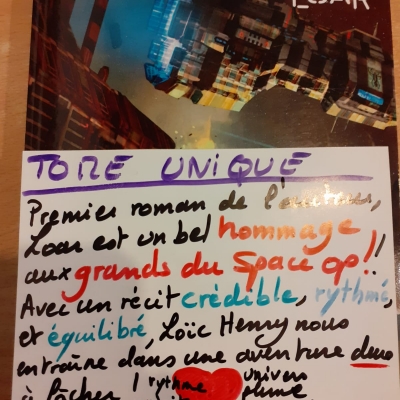 LOAR
TOME UNIQUE
Premier roman de l'auteur,
Loar est un bel hommage
aux grands du Space op!!
Avec un récit crédible, rythmé,
et équilibré, Loïc Henry nous
entraîne dans une aventure dure
à lâcher ! rythme univers